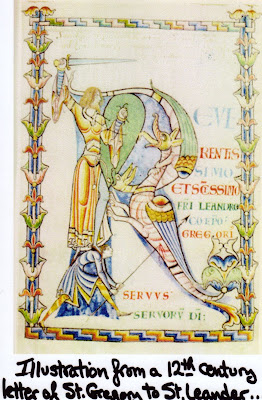 R EVE
RENTIS
SIMO
ETSCISSIMO
FRI LEANDRO
COEPO
GREGORI
SERVVS
SERVORV DI:
Illustration from a 12th century
letter of St. Gregory to St. Leander..